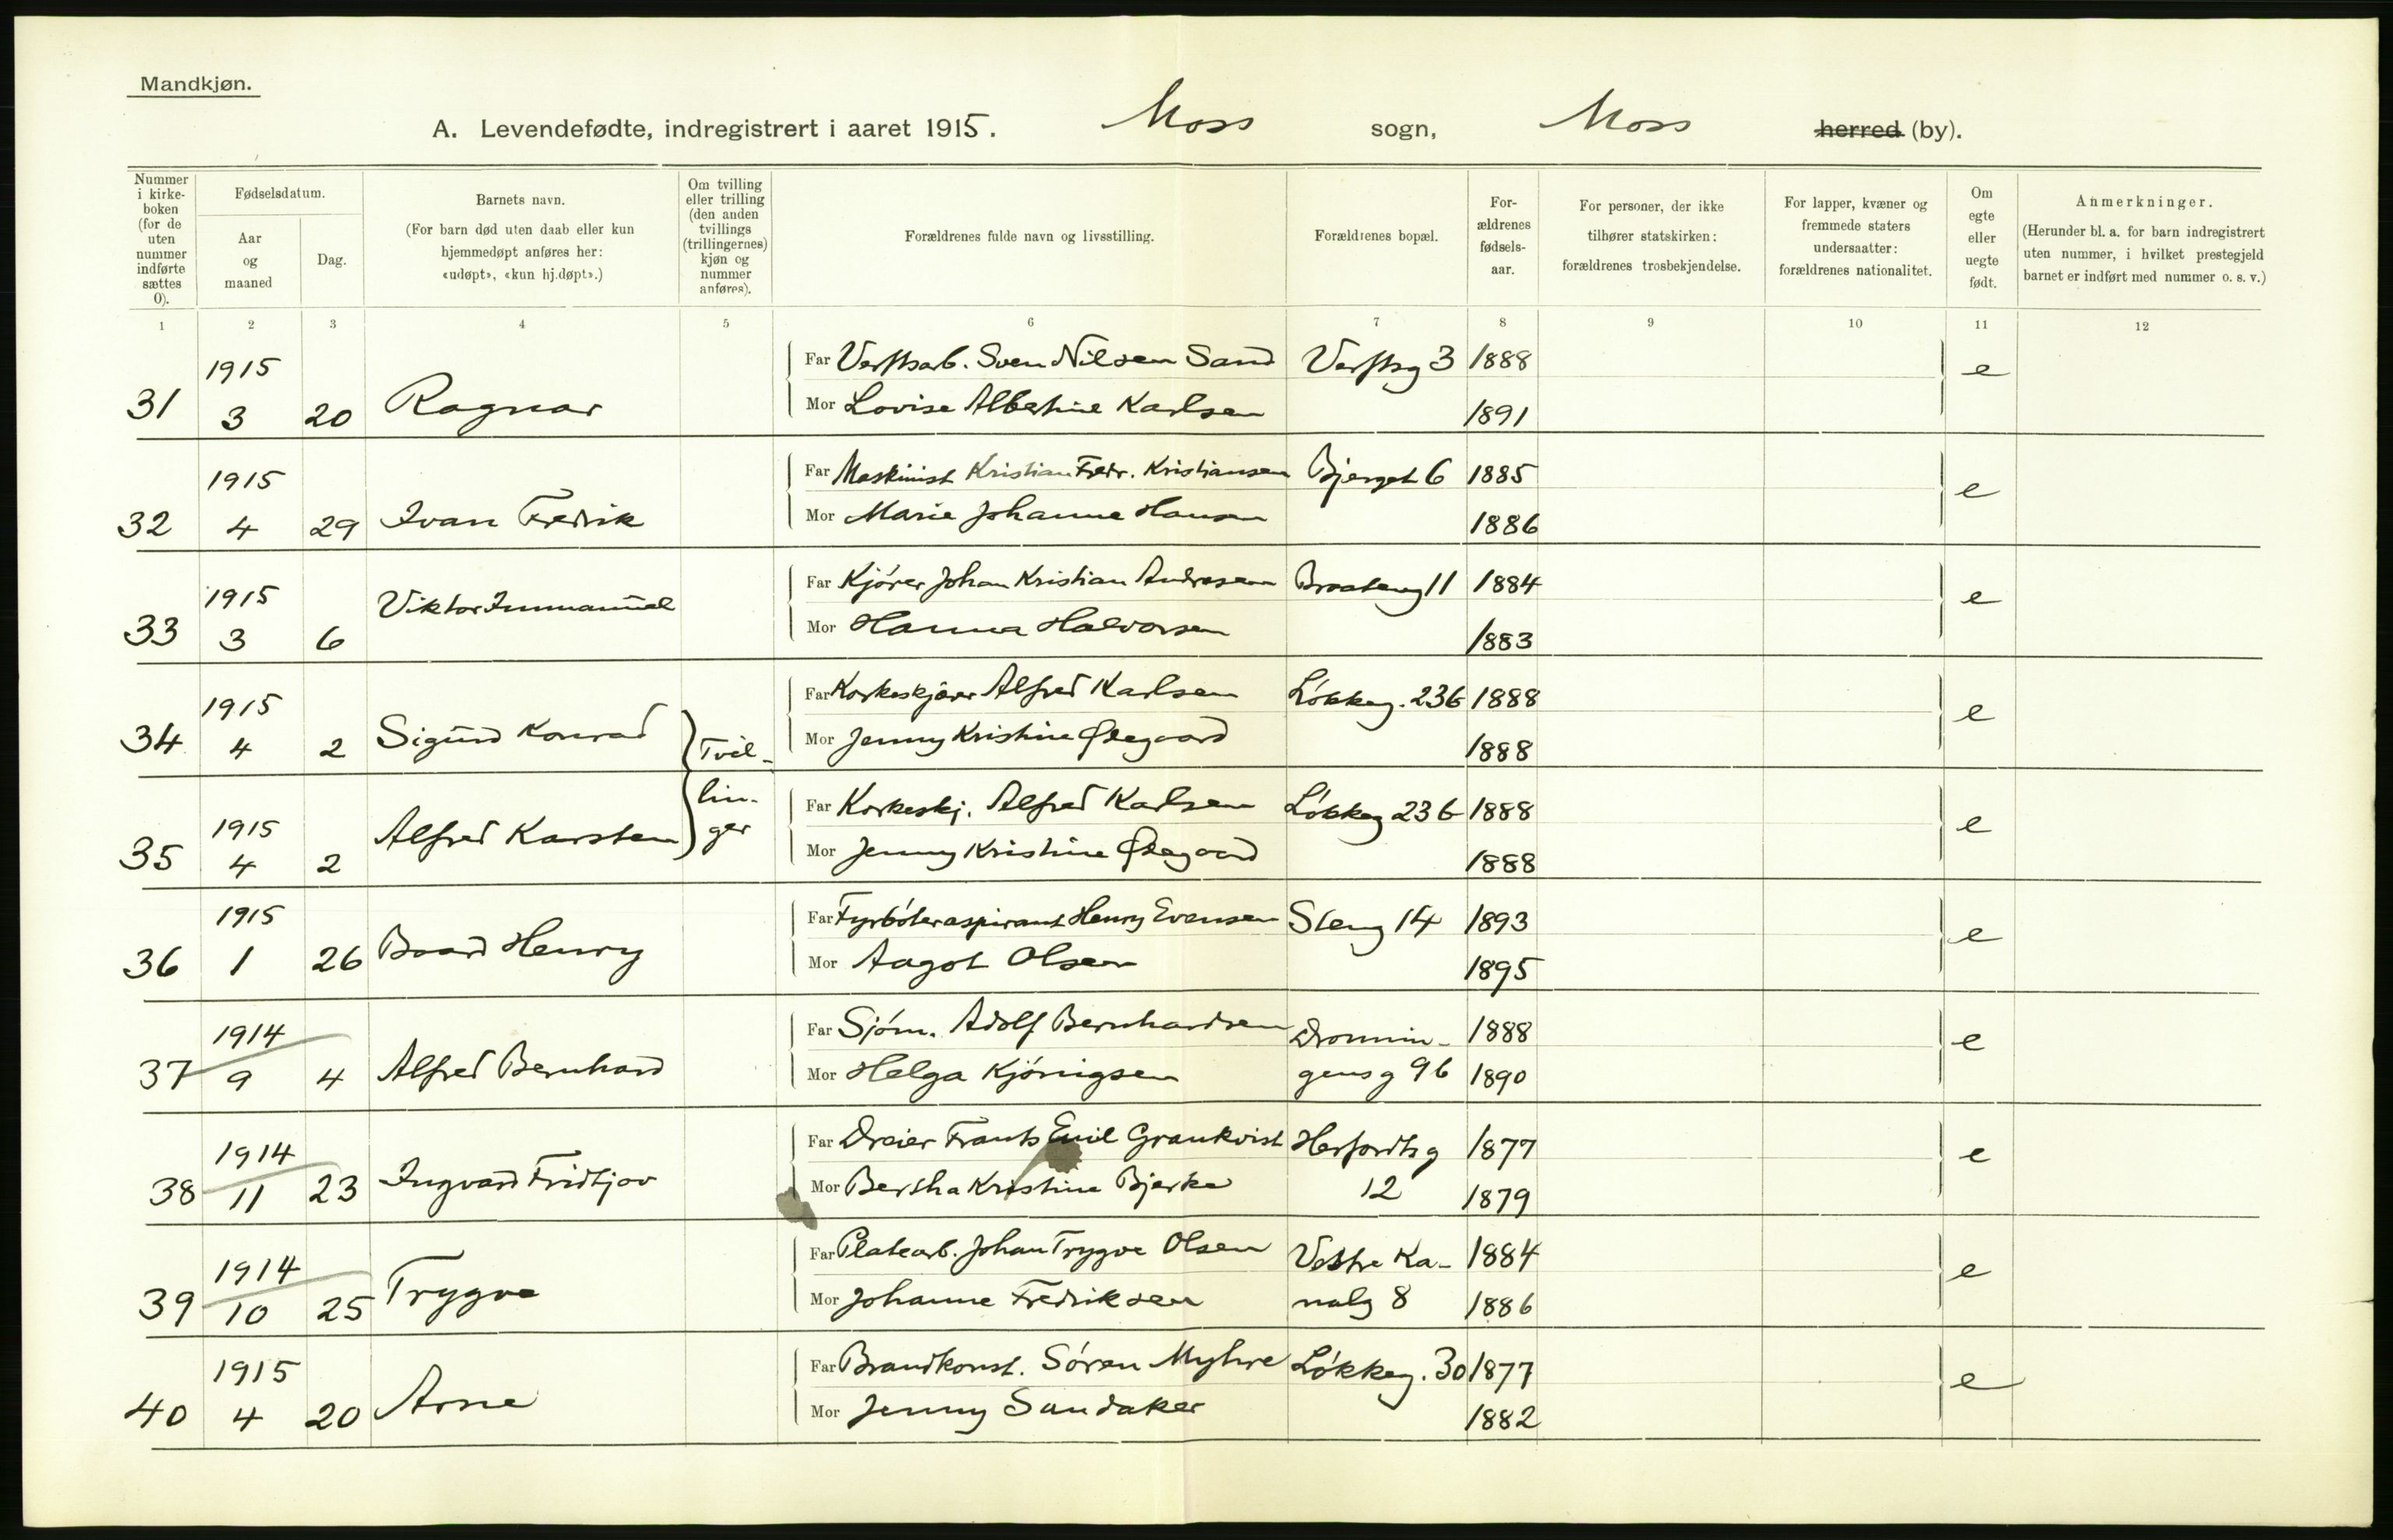 Mandkjøn.
A. Levendefødte, indregistrert i aaret 1915. Moss sogn, Moss herred (by).
Nummer i kirke-boken (for de uten nummer indførte sættes 0).
Fødselsdatum.
Aar og maaned
Dag.
Barnets navn.
(For barn død uten daab eller kun hjemmedøpt anføres her: «udøpt», «kun hj.døpt».)
Om tvilling eller trilling (den anden tvillings (trillingernes) kjøn og nummer anføres).
Forældrenes fulde navn og livsstilling.
Forældrenes bopæl.
For-ældrenes fødsels-aar.
For personer, der ikke tilhører statskirken: forældrenes trosbekjendelse.
For lapper, kvæner og fremmede staters undersaatter: forældrenes nationalitet.
Om egte eller uegte født.
Anmerkninger.
(Herunder bl. a. for barn indregistrert uten nummer, i hvilket prestegjeld barnet er indført med nummer o. s. v.)
1 2 3 4 5 6 7 8 9 10 11 12
1915 Far Verftsarb. Sven Nilsen Sand Verftsg 3 1888 e
31 3 20 Ragnar Mor Lovise Albertine Karlsen 1891
1915 Far Maskinist Kristian Fredr. Kristiansen Bjerget 6 1885 e
32 4 29 Ivan Fredrik Mor Marie Johanne Hansen 1886
1915 Far Kjører Johan Kristian Andresen 11 1884 e
33 3 6 Viktor Immanuel Mor Hanna Halvorsen 1883
1915 Far Korkeskjærer Alfred Karlsen Løkkeg. 236 1888 e
34 4 2 Sigurd Konrad Tvil- Mor Jenny Kristine Ødegaard 1888
1915 lin- Far Korkeskj. Alfred Karlsen Løkkeg 236 1888 e
35 4 2 Alfred Karsten ger Mor Jenny Kristine Ødegaard 1888
1915 Far Fyrbøteraspirant Henry Evensen Steng 14 1893 e
36 1 26 Baard Henry Mor Aagot Olsen 1895
1914 Far Sjøm. Adolf Bernhardsen Dronnin- 1888 e
37 9 4 Alfred Bernhard Mor Helga Kjønigsen gensg 96 1890
1914 Far Dreier Frants Emil Grankvist Herfordtsg 1877 e
38 11 23 Ingvard Fridtjov Mor Bertha Kristine Bjerke 12 1879
1914 Far Platearb. Johan Trygve Olsen Vestre Ka- 1884 e
39 10 25 Trygve Mor Johanne Fredriksen nalg 8 1886
1915 Far Brandkonst. Søren Myhre Løkkeg. 30 1877 e
40 4 20 Arne Mor Jenny Sandaker 1882